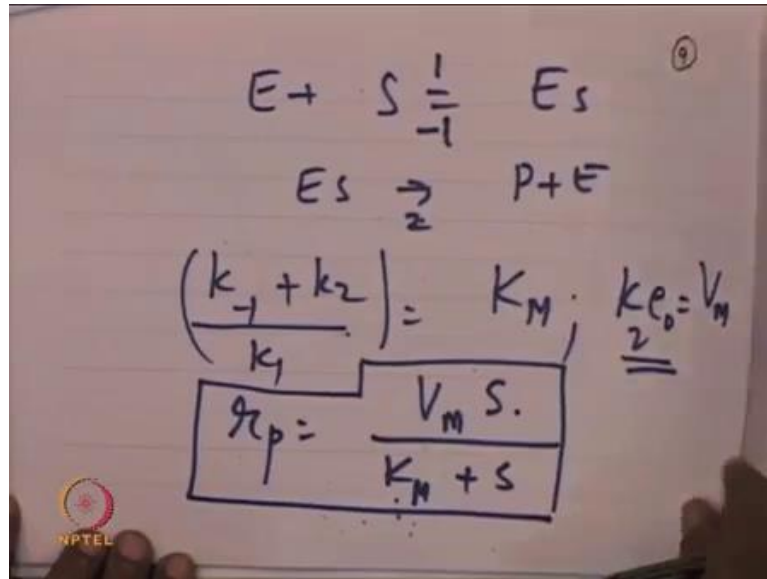 9
E + S 1 = -1 Es
Es → 2 P + E
(k-1 + k2 / k1) = KM ; k2 e0 = VM
rp = VM S. / KM + s
NPTEL